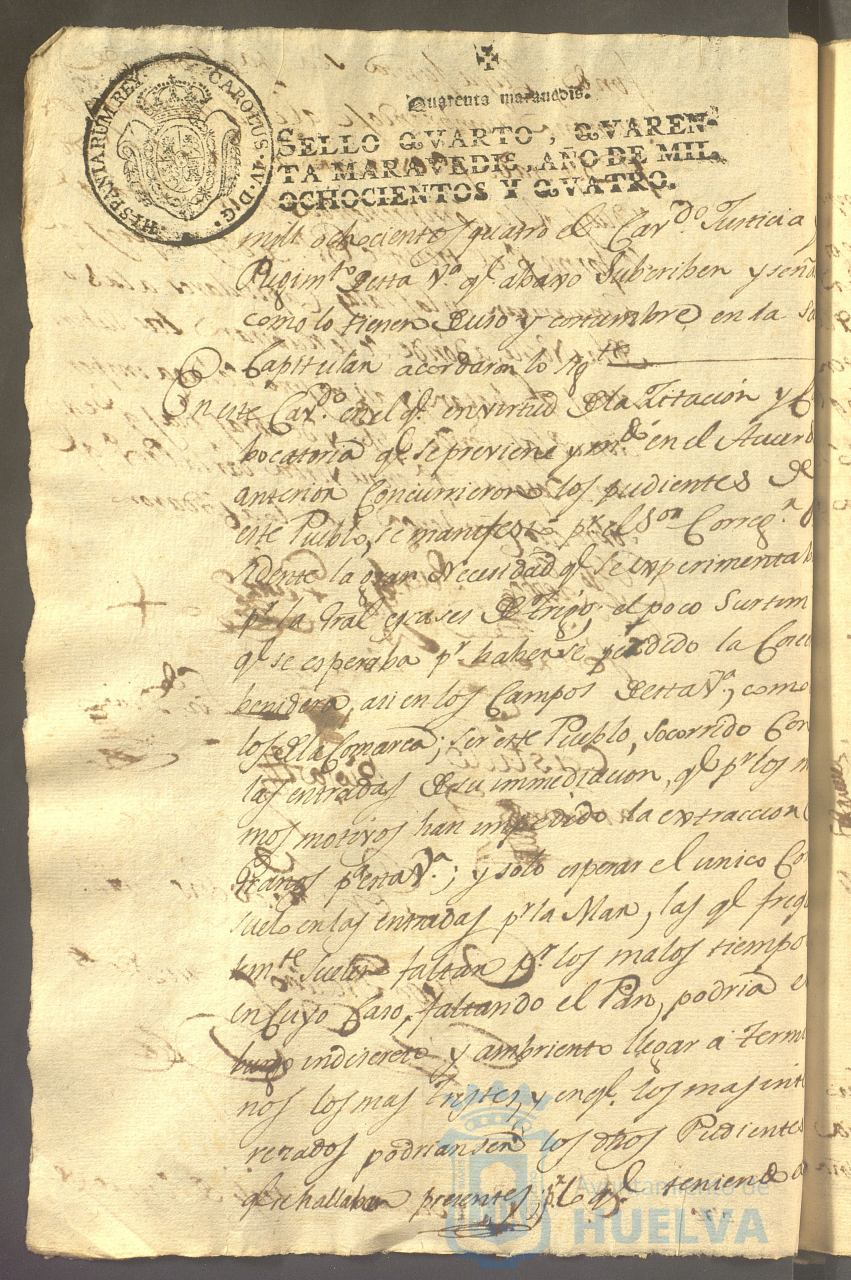 HISPANIARUM REX CAROLUS IV D G
Quarenta maravedis.
SELLO QVARTO, QVAREN-
TA MARAVEDIS, AÑO DE MIL
OCHOCIENTOS Y QVATRO.
mill ochocientos quatro el Cavdo Justicia y
Regimto desta Va ql abaxo Subscriben y seña
como lo tienen de uso y costumbre en la Sa
Capitular acordaron lo sigte
En este Cavdo en el ql en virtud de la Zitación y
bocatoria ql se previene y en el Acuerd
anterior Concurrieron los pudientes de
este Pueblo, se manifestó pr el Sor Corregr
sidente la gran Necesidad ql se experimentab
pr la gral escases de trigo; el poco Surtim
ql se esperaba pr haberse perdido la Cose
benidera, asi en los Campos desta Va, como
los de la Comarca; ser este Pueblo, socorrido Con
las entradas de su immediacion, ql pr los m
mos motivos han impedido la extraccion
Granos pa esta Va; y solo esperar el unico Con
suelo en las entradas pr la Mar, las ql freqe
emte suelen faltar pr los malos tiempo
en Cuyo Caso, faltando el Pan, podria el
bulgo indiscreto y ambriento llegar a Termi
nos los mas tristes, y en ql los mas inte
rezados podrian ser los dhos Pudientes
ql se hallaban presentes, pr lo ql teniendo
Ayuntamiento de
HUELVA